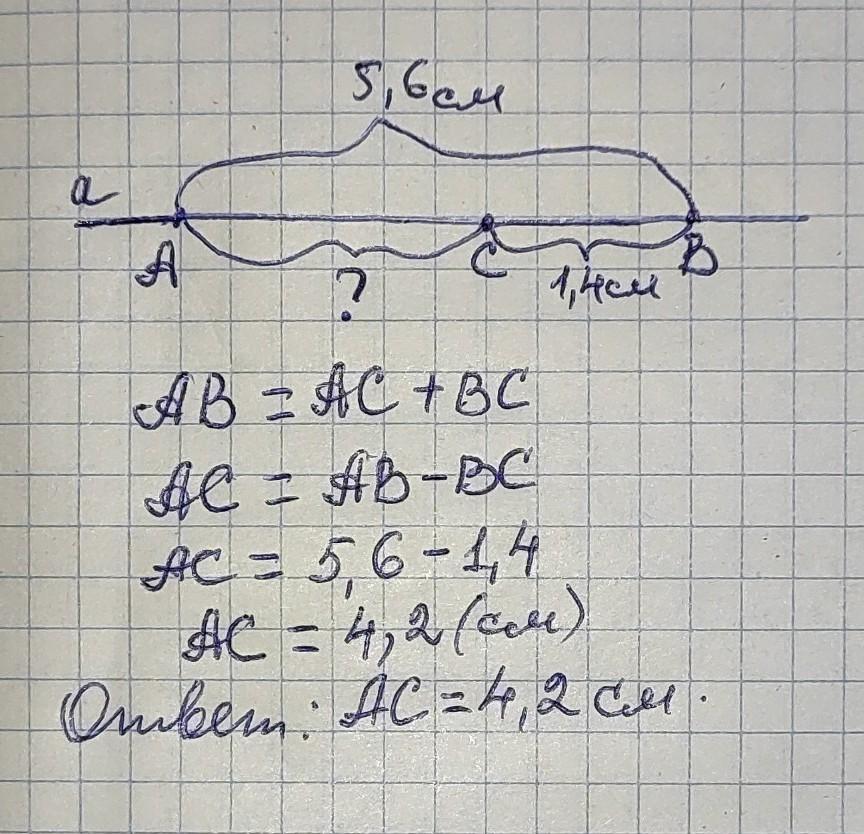 5,6см
a
A ? C 1,4см B
AB = AC + BC
AC = AB - BC
AC = 5,6 - 1,4
AC = 4,2 (см)
Ответ: AC = 4,2 см.